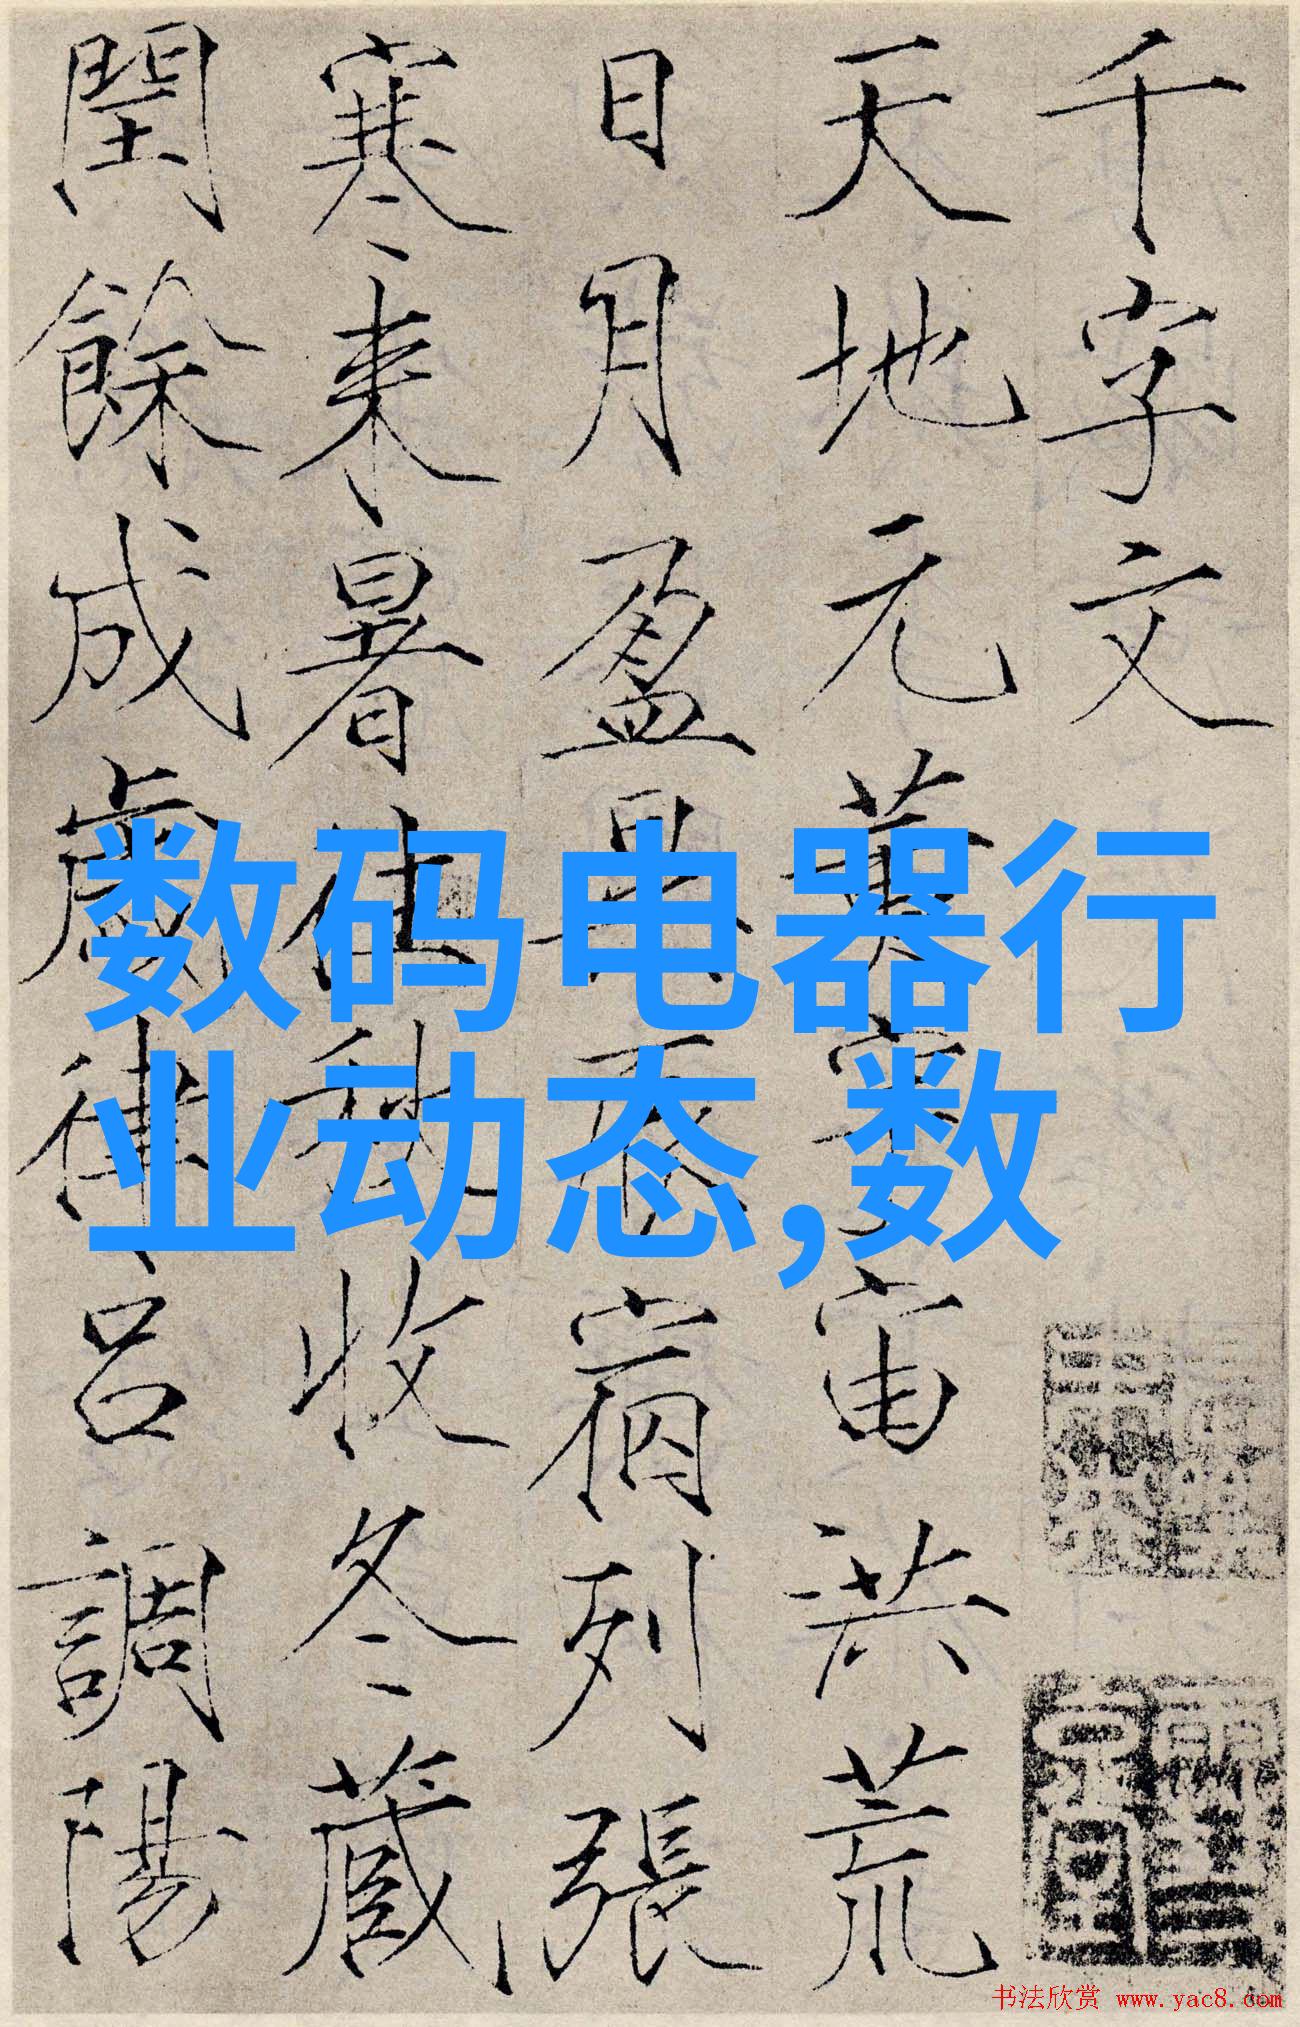 千字文
天地元黃宇宙洪荒
日月盈昃辰宿列張
寒来暑往秋收冬蔵
閏餘成歲律呂調陽
数码电器行
业动态,数
书法欣赏 www.yac8.com